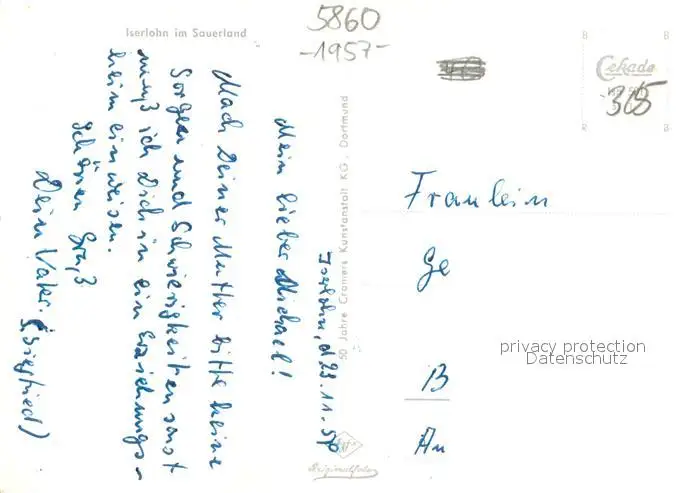 Iserlohn im Sauerland
5860
-1957-
Cekade
-365
B B
R B
Iserlohn, d 23.11.56
Mein lieber Michael!
Mach Deiner Mutter bitte keine
Sorgen und Schwierigkeiten sonst
muß ich Dich in ein Erziehungs-
heim einweisen.
Schönen Gruß
Dein Vater. (Siegfried)
50 Jahre Cramers Kunstanstalt KG., Dortmund
Agfa
Originalfoto
Fraulein
Ge
B
An
privacy protection
Datenschutz